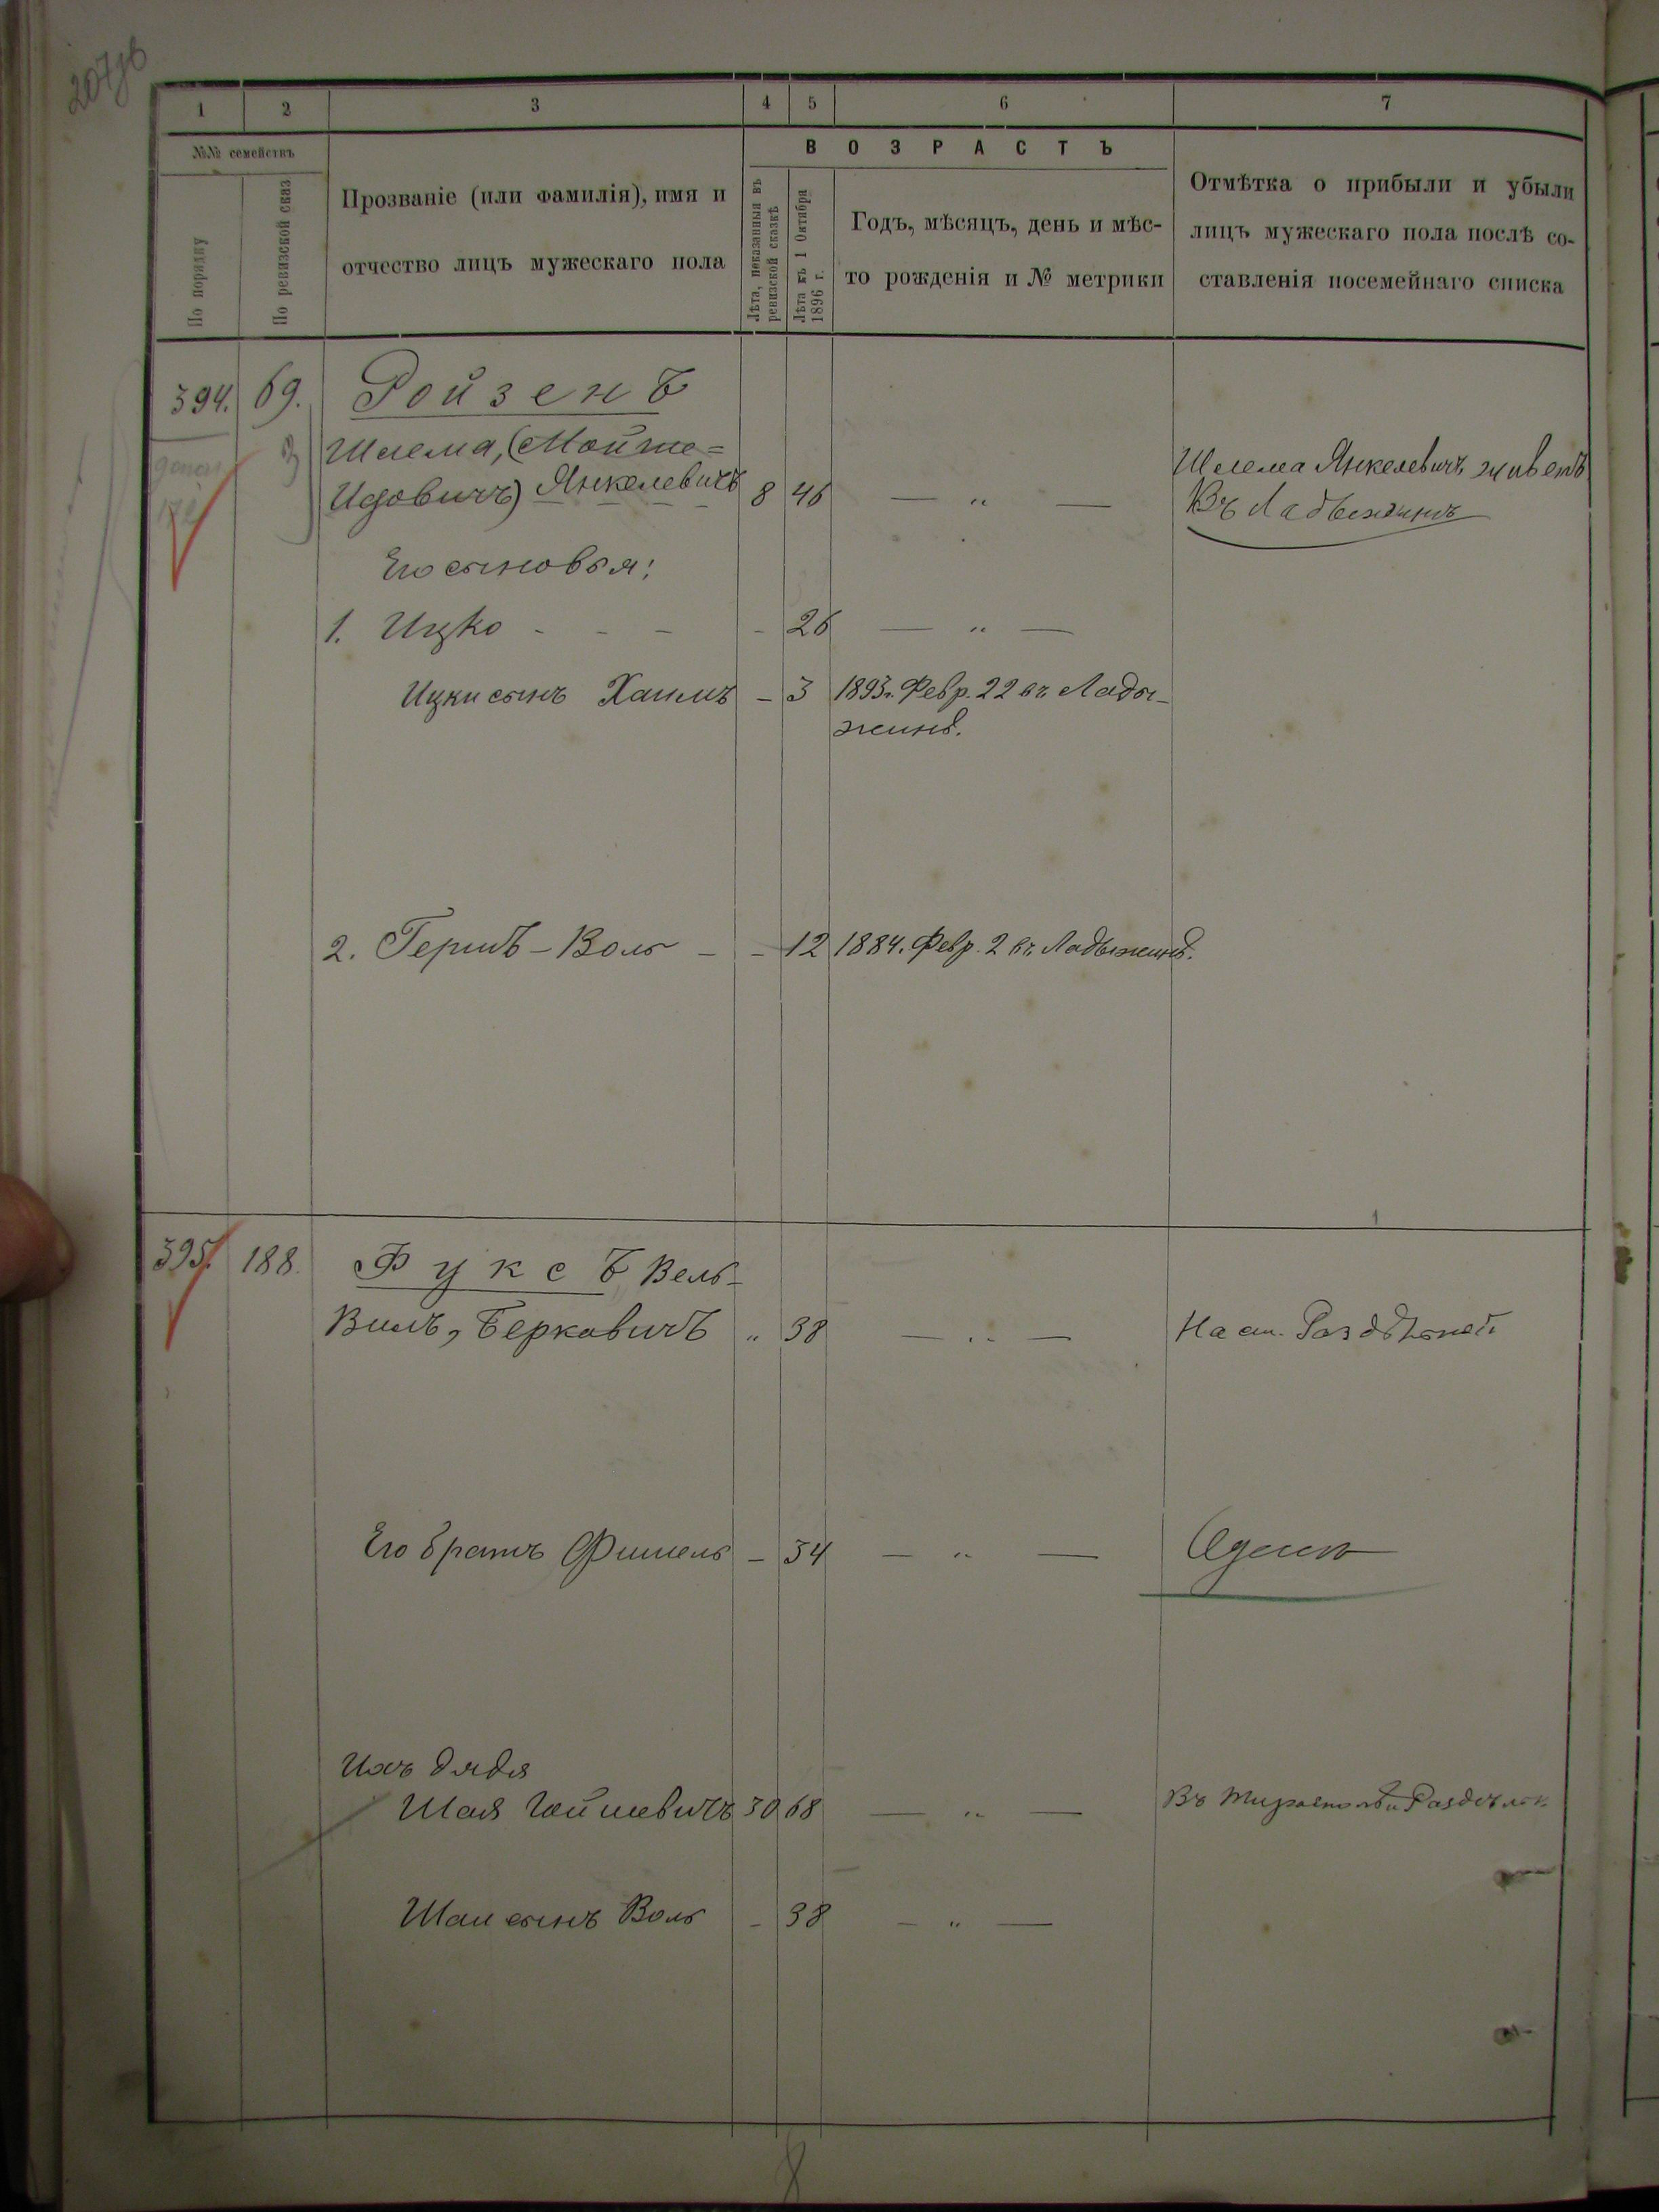 207об
1 2 3 4 5 6 7
№№ семействъ
По порядку
По ревизской сказ
Прозваніе (или фамилія), имя и
отчество лицъ мужескаго пола
ВОЗРАСТЪ
Лѣта, показанныя въ
ревизской сказкѣ
Лѣта къ 1 Октября
1896 г.
Годъ, мѣсяцъ, день и мѣс-
то рожденія и № метрики
Отмѣтка о прибыли и убыли
лицъ мужескаго пола послѣ со-
ставленія посемейнаго списка
394. 69. Ройзенъ
Шлема, (Мойше=
Идовичъ) Янкелевичъ 8 46 — „ —
Шлема Янкелевичъ живетъ
Въ Ладыжинѣ
Его сыновья:
1. Ицко - - - - 26 — „ —
Ицки сынъ Хаимъ - 3 1893г. Февр. 22 въ Лады-
жинѣ.
2. Гершъ-Воль - - 12 1884. Февр. 2 въ Ладыжинѣ.
395. 188. Фуксъ Вель-
Вилъ, Берковичъ „ 38 — „ — На ст. Раздѣльной
Его братъ Фишель - 34 — „ —
Ихъ дядя
Шая Гойшевичъ 30 68 — „ — Въ Тирасполѣ и Раздѣльн.
Шаи сынъ Воль - 38 — „ —